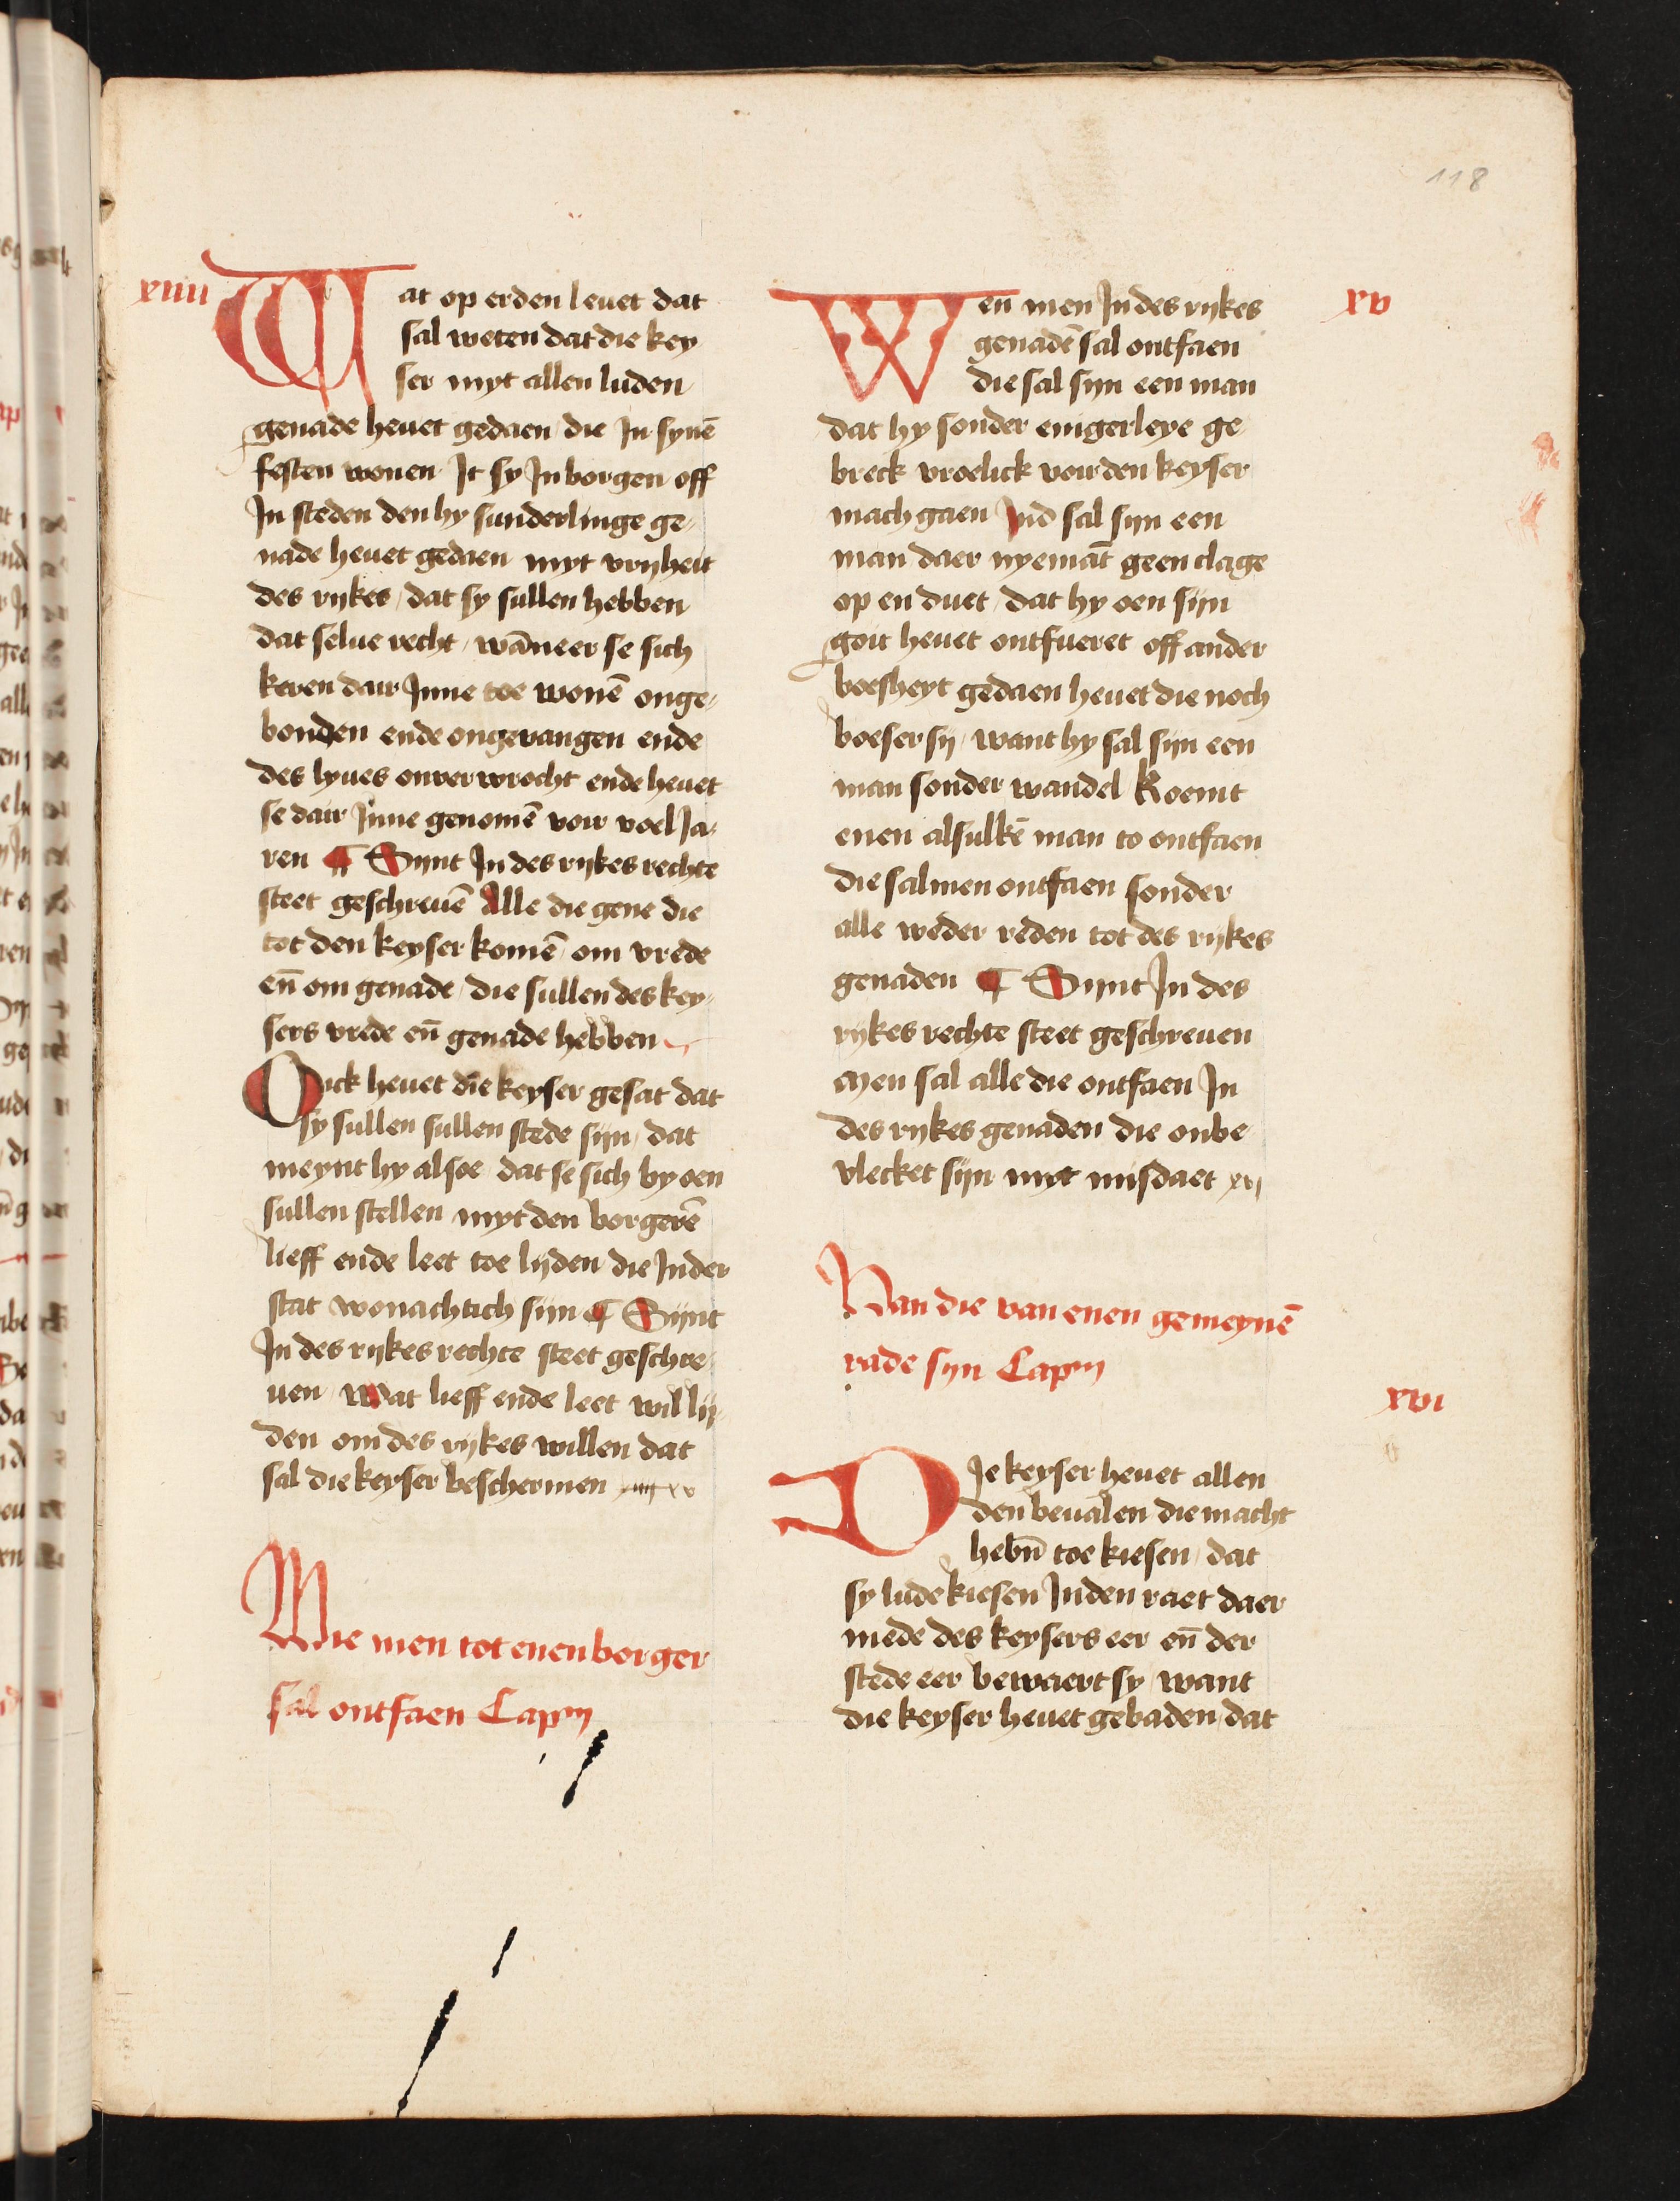 118
xiiii
Wat op erden levet dat
sal weten dat die key
ser myt allen luden
genade hevet gedaen die Jn synē
festen wonen Jt sy Jn borgen off
Jn steden den hy sunderlinge ge-
nade hevet gedaen myt vryheit
des rijkes / dat sy sullen hebben
dat selve recht / wānneer se sich
keren dair Jnne toe wonē onge-
bonden ende ongevangen ende
des lyves onverwrocht ende hevet
se dair Jnne genomē voir voel Ja-
ren ¶ Sijnt Jn des rijkes rechte
steet geschrevē Alle die gene die
tot den keyser komē om vrede
en̄ om genade / die sullen des key-
sers vrede en̄ genade hebben
Oick hevet die keyser gesat dat
sy sullen sullen stede sijn / dat
meynt hy alsoe dat se sich by oen
sullen stellen myt den borgerē
lieff ende leet toe lijden die Jn der
stat wonachtich sijn ¶ Sijnt
Jn des rijkes rechte steet geschre-
ven / Wat lieff ende leet wil lij-
den om des rijkes willen dat
sal die keyser beschermen xiiij xv
Wie men tot enen borger
sal ontfaen Capm
xv
Wen men Jn des rijkes
genadē sal ontfaen
die sal sijn een man
dat hy sonder enigerleye ge-
breck vroelick voir den keyser
mach gaen Jnd sal sijn een
man daer nyemāt geen clage
op en duet / dat hy oen sijn
goit hevet ontfueret off ander
boesheyt gedaen hevet die noch
boeser sij / want hy sal sijn een
man sonder wandel Koemt
enen alsulkē man to ontfaen
die salmen ontfaen sonder
alle weder reden tot des rijkes
genaden ¶ Sijnt Jn des
rijkes rechte steet geschreven
Men sal alle die ontfaen Jn
des rijkes genaden die onbe
vlecket sijn myt misdaet xvj
Van die van enen gemeynē
rade sijn Capm
xvi
DJe keyser hevet allen
den bevalen die macht
hebn̄ toe kiesen / dat
sy lude kiesen Jn den raet daer
mede des keysers eer en̄ der
stede eer bewaert sy / want
die keyser hevet gebaden / dat